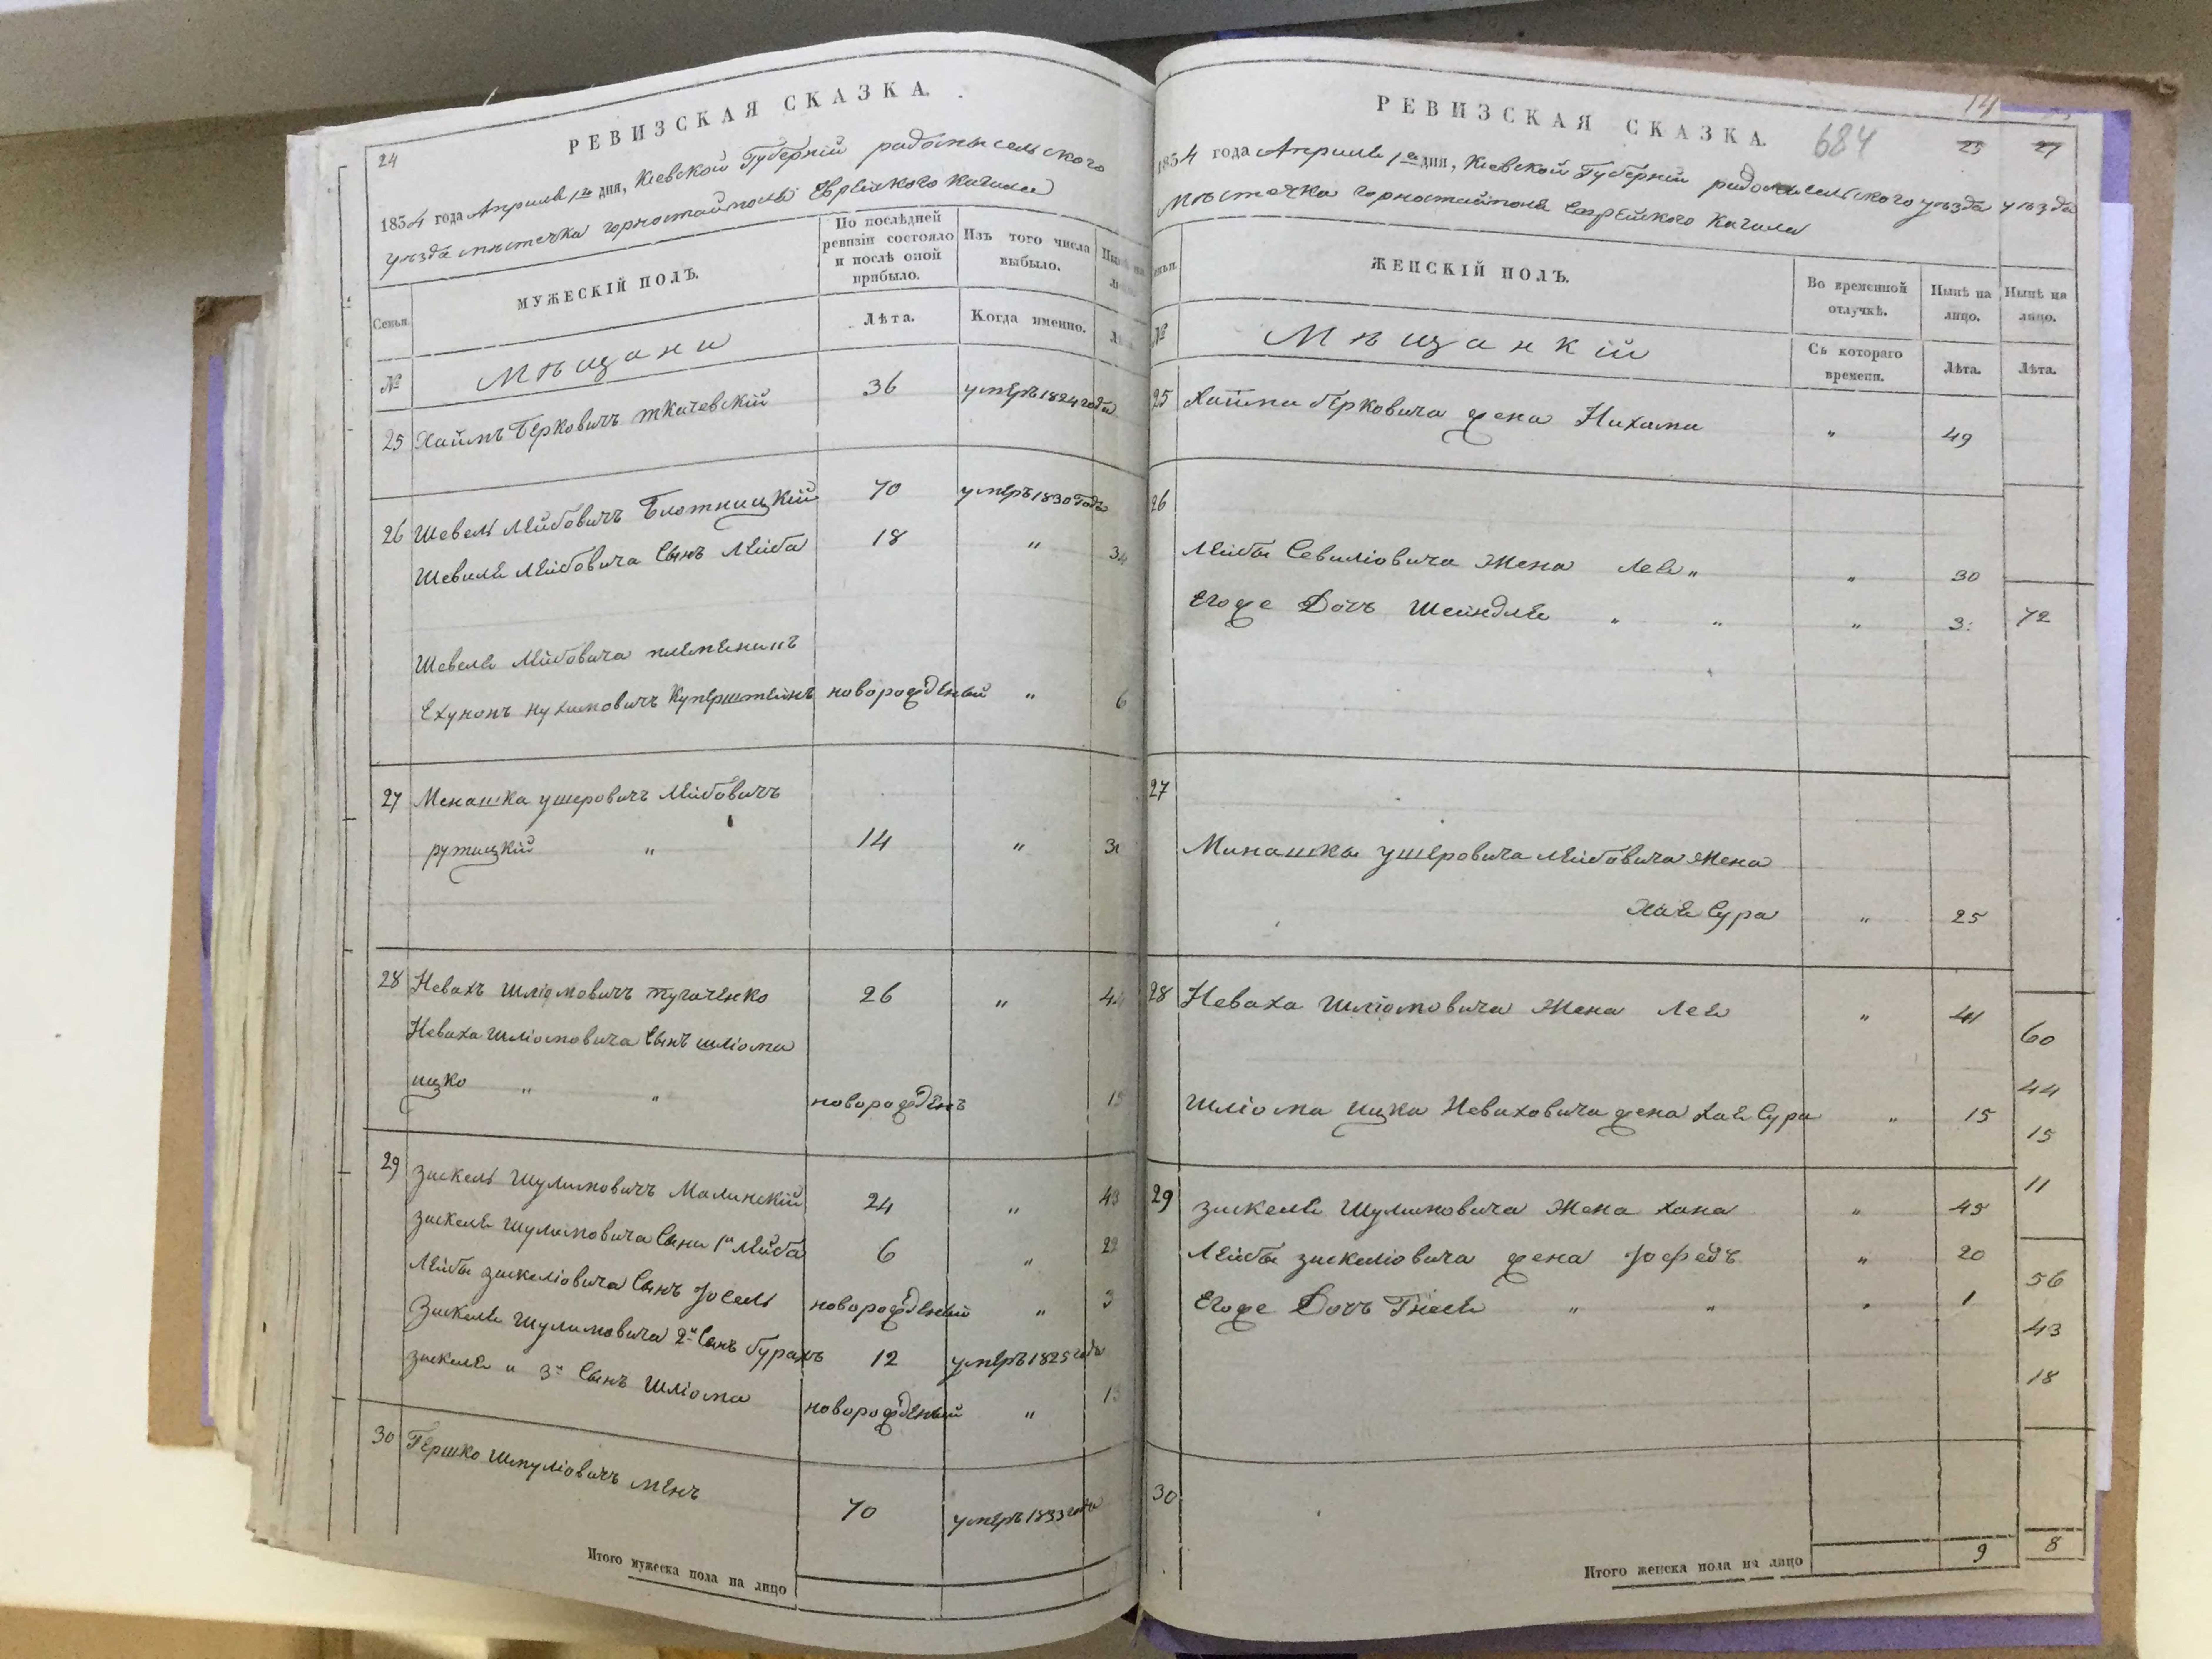 24
РЕВИЗСКАЯ СКАЗКА.
1854 года Апреля 1го дня, Кіевской Губерніи радомысельского
уезда местечка горностайполя Еврейкого Кагала
Семьи.
МУЖЕСКІЙ ПОЛЪ.
По послѣдней ревизіи состояло и послѣ оной прибыло.
Изъ того числа выбыло.
№
Мѣщани
Лѣта.
Когда именно.
25 Хаимъ Берковичъ Ткачевскій 36 умеръ 1824 года
26 Шевель Лейбовичъ Блотницкій 70 умеръ 1830 года
Шевеля Лейбовича Сынъ Лейба 18 " 34
Шевеля Лейбовича племеникъ
Ехунонъ Нухимовичъ Куперштейнъ новорожденый " 6
27 Менашка Ушеровичъ Лейбовичъ
рутицкій " 14 "
28 Невахъ Шліомовичъ Тугаченко 26 "
Неваха Шліомовича Сынъ Шліома
ицко " " новорожденъ 15
29 Зискель Шулимовичъ Малинскій 24 " 43
Зискеля Шулимовича Сыни 1й Лейба 6 " 22
Лейбы Зискеліовича Сынъ Іосель новорожденый " 3
Зискеля Шулимовича 2й Сынъ Бурахъ 12 умеръ 1825 года
Зискеля и 3й Сынъ Шліома новорожденый "
30 Гершко Шмуліовичъ Менъ 70 умеръ 1833 года
Итого мужеска пола на лицо
РЕВИЗСКАЯ СКАЗКА.
684
1854 года Апреля 1го дня, Кіевской Губерніи радомысельского уезда уезда
Местечка горностайполя Еврейкого Кагала
ЖЕНСКІЙ ПОЛЪ.
Во временной отлучкѣ.
Нынѣ на лицо.
Нынѣ на лицо.
№
Мѣщанкій
Съ котораго времени.
Лѣта.
Лѣта.
25 Хаима Берковича жена Нихама " 49
26
Лейбы Севиліовича Жена Лея " " 30
Егоже Дочъ Шейндля " " " 3
72
27
Минашки Ушеровича Лейбовича Жена
Хая Сура " 25
28 Неваха Шліомовича Жена Лея " 41
60
44
Шліома ицка Неваховича жена Хая Сура " 15
15
11
29 Зискеля Шулимовича Жена Хана " 45
Лейбы Зискеліовича жена Іофедъ " 20
56
Егоже Дочъ Гнеся " " " 1
43
18
30
Итого женска пола на лицо 9 8